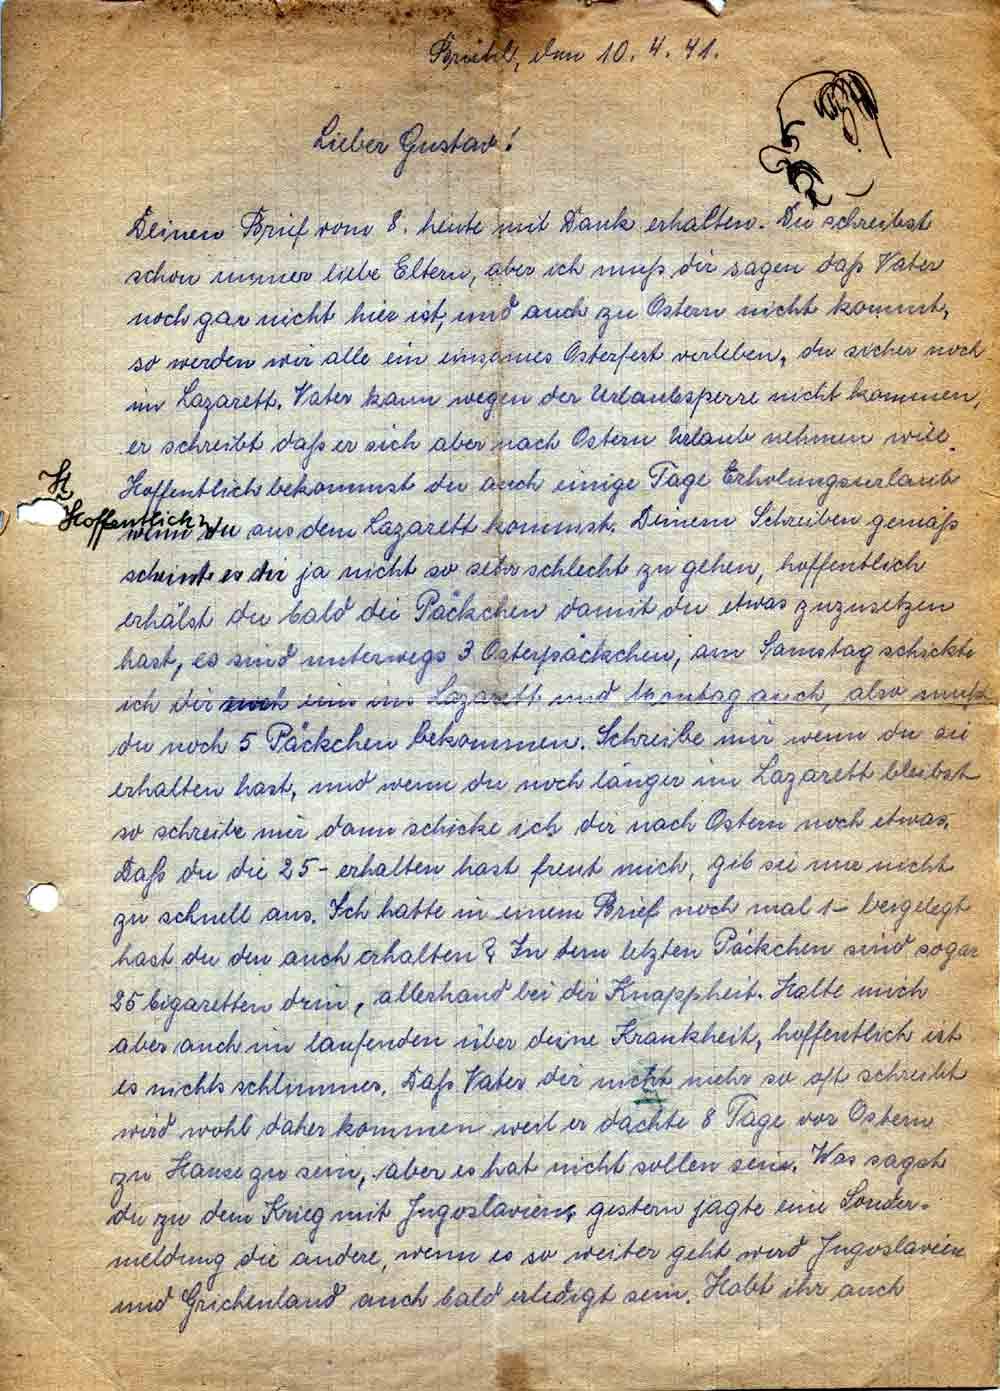 Brühl, den 10. 4. 41.
Lieber Gustav!
Deinen Brief vom 8. heute mit Dank erhalten. Du schreibst
schon immer liebe Eltern, aber ich muß dir sagen daß Vater
noch gar nicht hier ist, und auch zu Ostern nicht kommt,
so werden wir alle ein einsames Osterfest verleben, du sicher noch
im Lazarett. Vater kann wegen der Urlaubsperre nicht kommen,
er schreibt daß er sich aber nach Ostern Urlaub nehmen will.
H
Hoffentlich bekommst du auch einige Tage Erholungsurlaub
Hoffentlich
wenn du aus dem Lazarett kommst. Deinem Schreiben gemäß
scheint es dir ja nicht so sehr schlecht zu gehen, hoffentlich
erhälst du bald die Päckchen damit du etwas zuzusetzen
hast, es sind unterwegs 3 Osterpäckchen, am Samstag schickte
ich dir noch eins ins Lazarett und Montag auch, also mußt
du noch 5 Päckchen bekommen. Schreibe mir wenn du sie
erhalten hast, und wenn du noch länger im Lazarett bleibst
so schreibe mir dann schicke ich dir nach Ostern noch etwas.
Daß du die 25- erhalten hast freut mich, gib sie nur nicht
zu schnell aus. Ich hatte in einem Brief noch mal 1- beigelegt
hast du den auch erhalten? In dem letzten Päckchen sind sogar
25 Cigaretten drin, allerhand bei der Knappheit. Halte mich
aber auch im laufenden über deine Krankheit, hoffentlich ist
es nichts schlimmes. Daß Vater dir nicht mehr so oft schreibt
wird wohl daher kommen weil er dachte 8 Tage vor Ostern
zu Hause zu sein, aber es hat nicht sollen sein. Was sagst
du zu dem Krieg mit Jugoslavien, gestern jagte eine Sonder-
meldung die andere, wenn es so weiter geht wird Jugoslavien
und Grichenland auch bald erledigt sein. Habt ihr auch